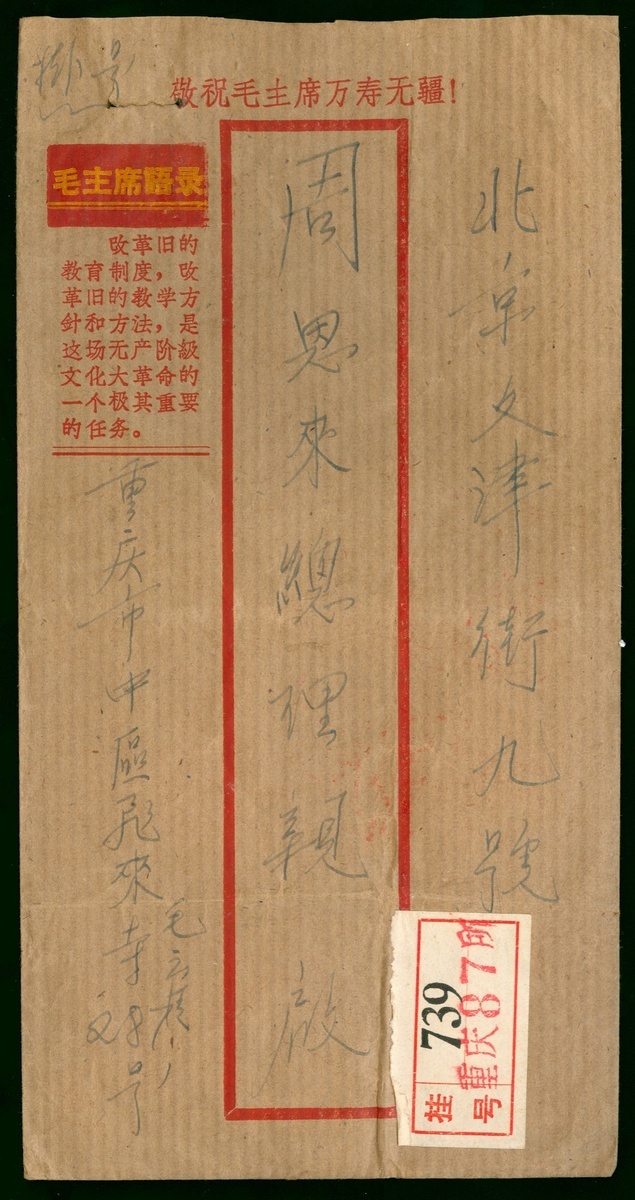 掛号
敬祝毛主席万寿无疆!
北京文津街九號
周恩來總理親啟
毛主席語录
改革旧的
教育制度，改
革旧的教学方
針和方法，是
这场无产阶級
文化大革命的
一个极其重要
的任务。
重庆市中區飛來寺号
毛
739
重庆87所
挂号